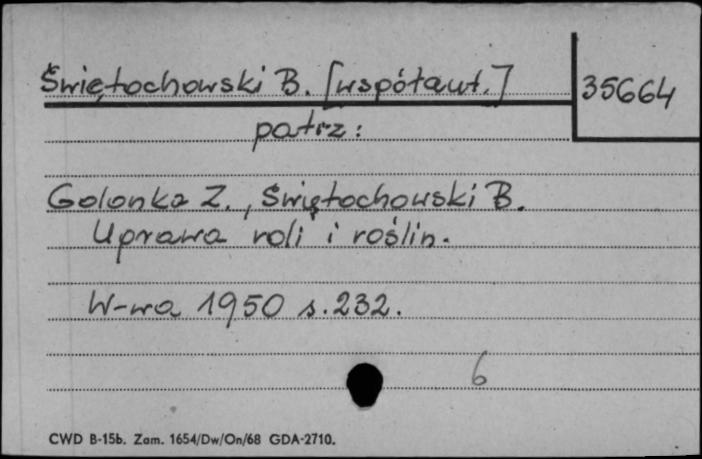 Świętochowski B. [współaut.]
35664
patrz:
Golonka Z., Świętochowski B.
Uprawa roli i roślin.
W-wa 1950 s. 232.
6
CWD B-15b. Zam. 1654/Dw/On/68 GDA-2710.